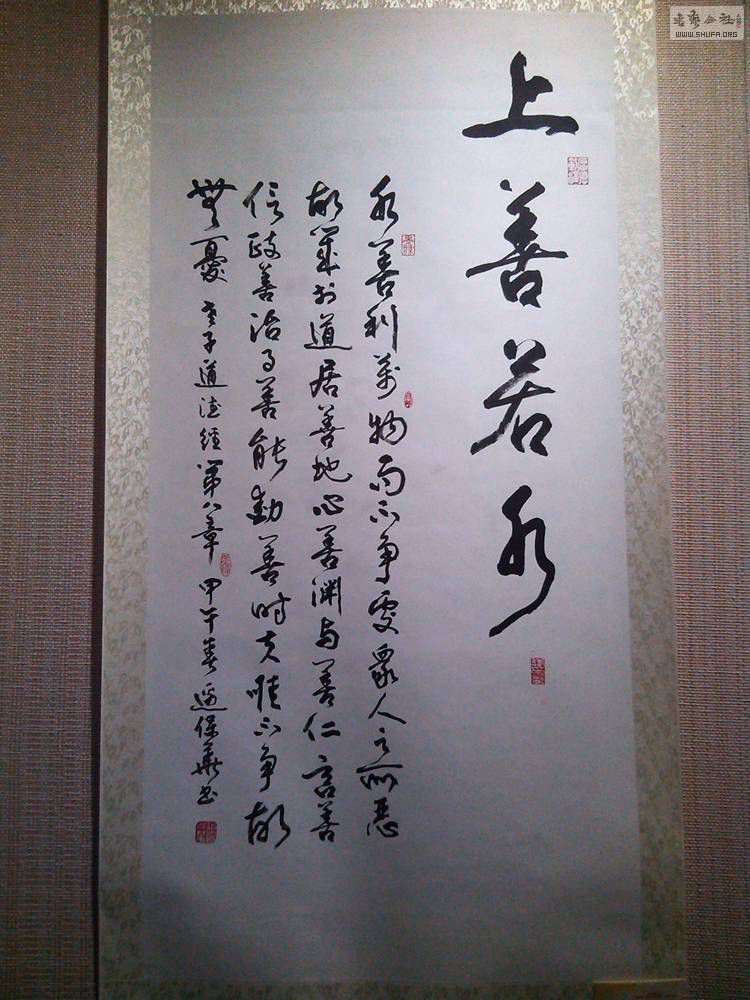 上善若水
水善利萬物而不争處衆人之所恶
故幾於道居善地心善渊与善仁言善
信政善治事善能動善时夫唯不争故
無憂 老子道德經第八章 甲午春 保華书
書藝公社
WWW.SHUFA.ORG